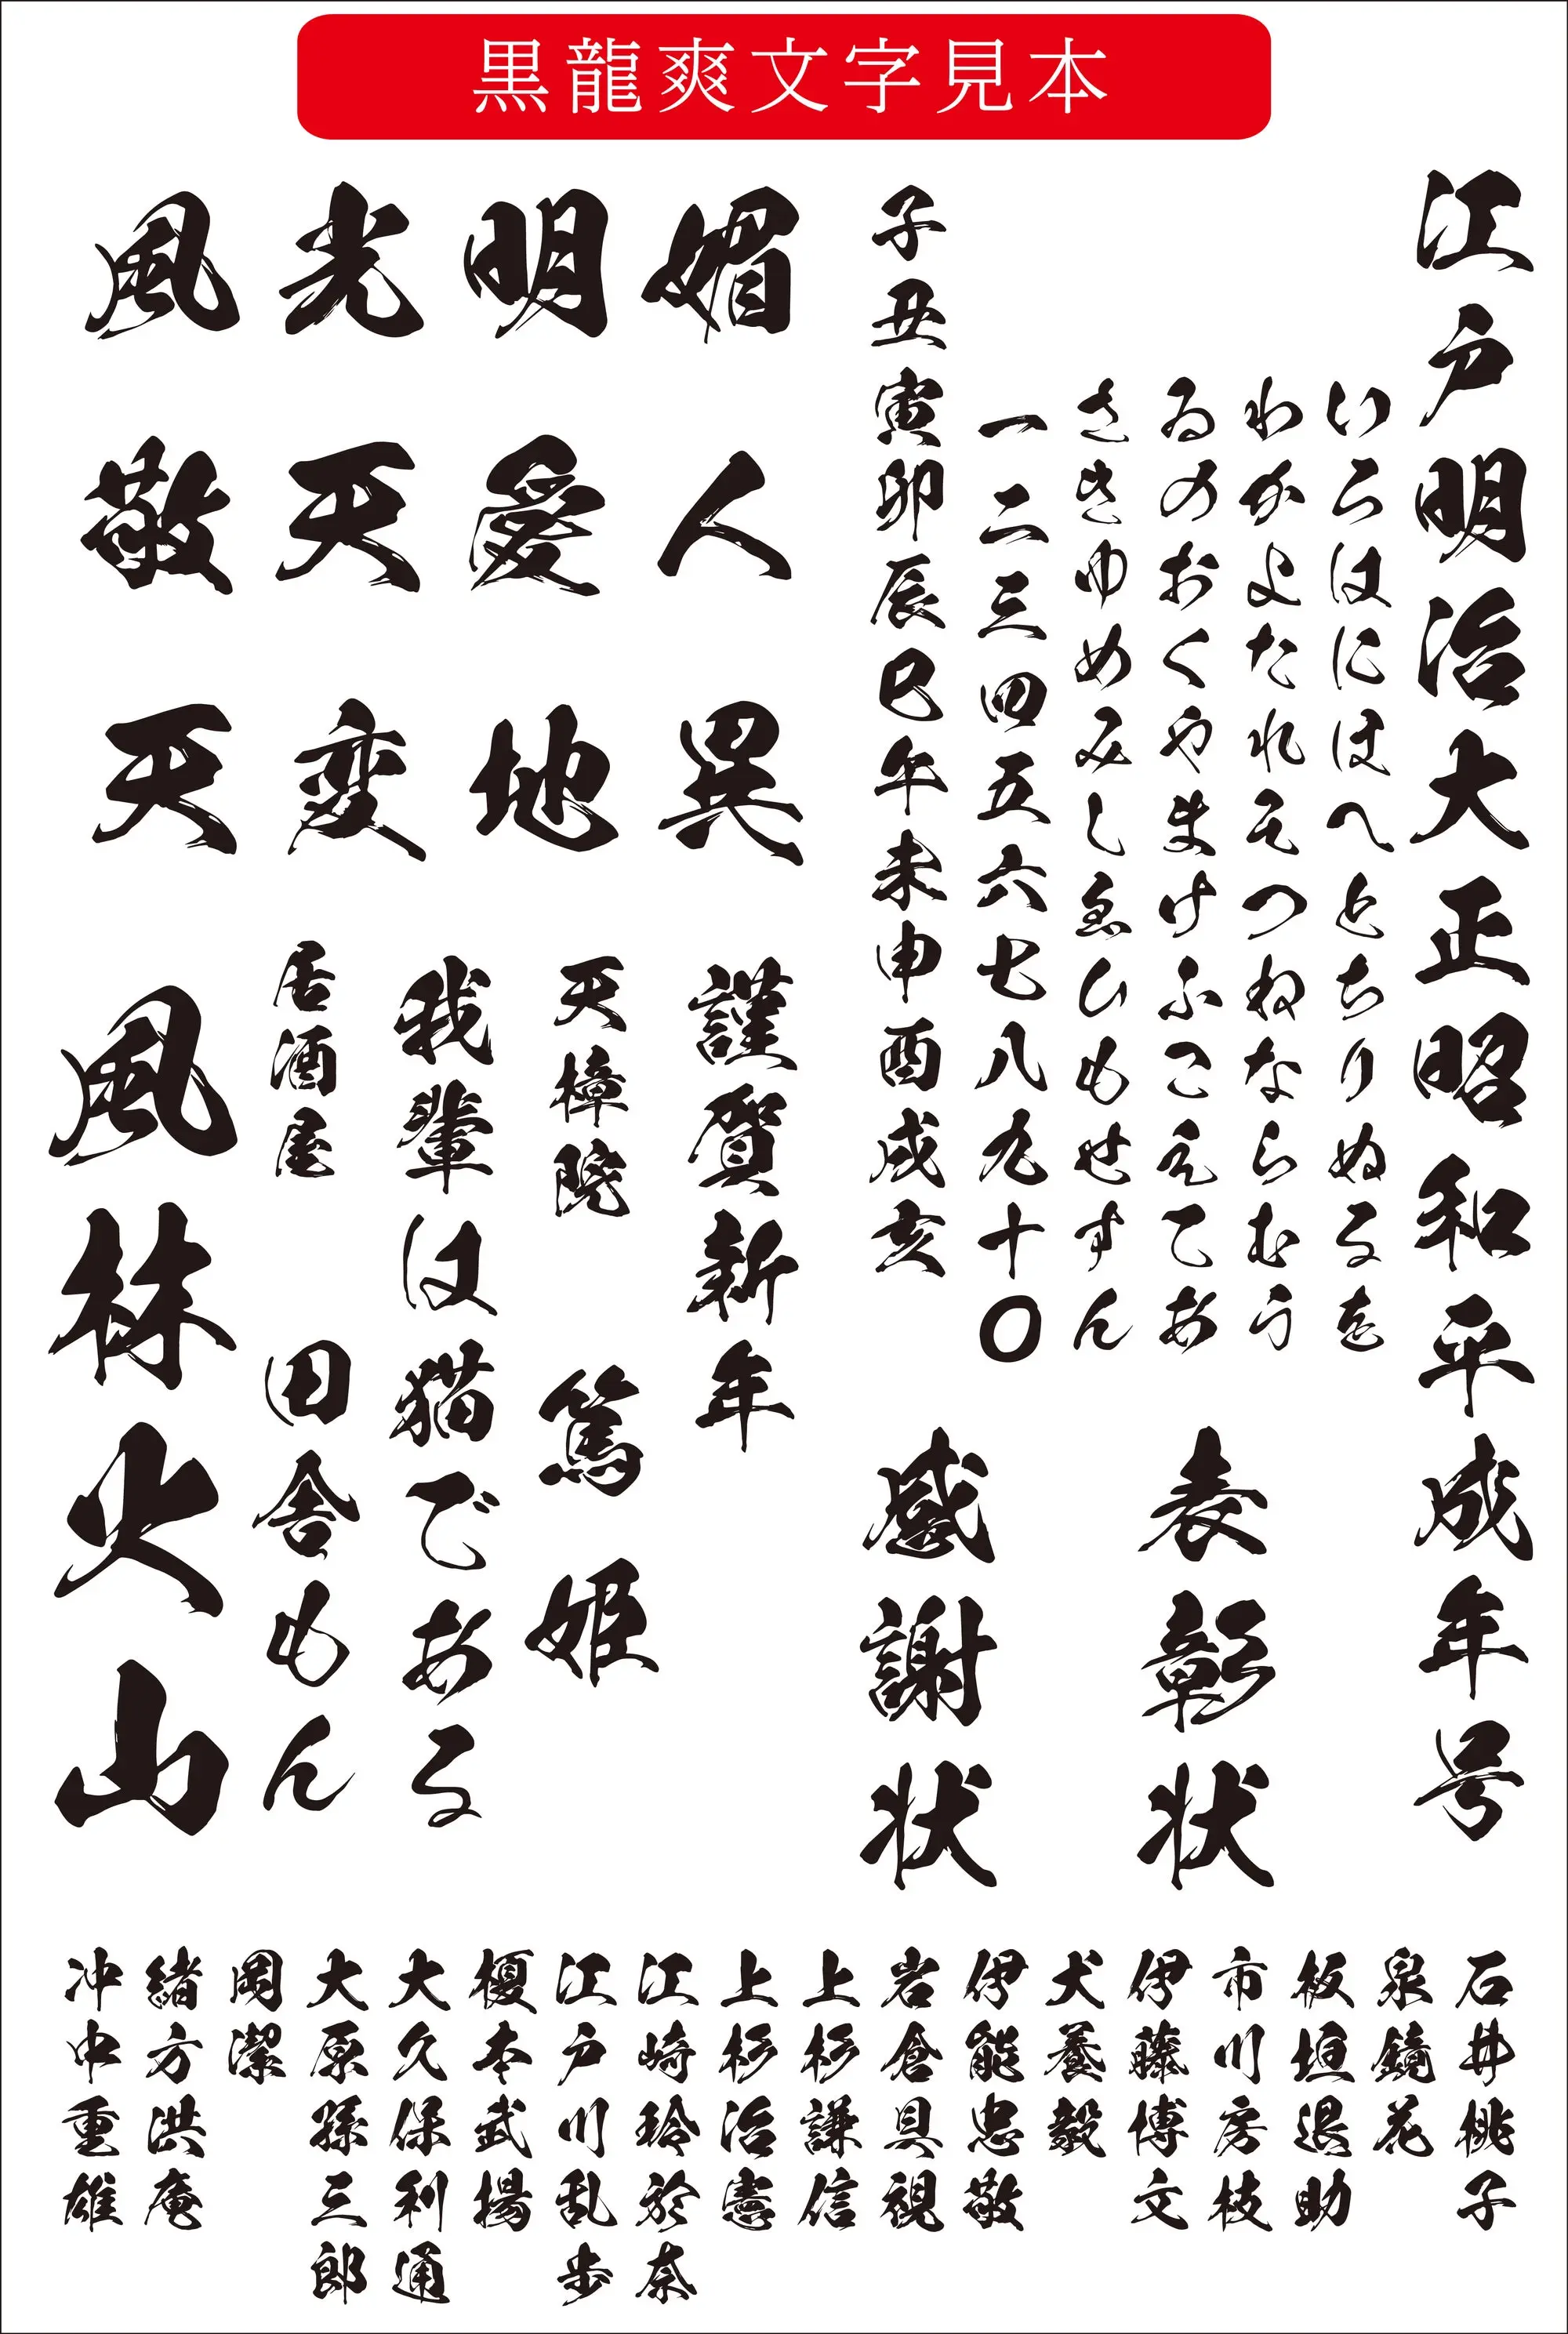 黒龍爽文字見本
江戸明治大正昭和平成年号
いろはにほへとちりぬるを
わかよたれそつねならむう
ゐのおくやまけふこえてあ
さきゆめみしゑひもせすん
一二三四五六七八九十〇
子丑寅卯辰巳午未申酉戌亥
表彰状
感謝状
風光明媚
敬天愛人
天変地異
謹賀新年
天樟院
篤姫
我輩は猫である
居酒屋
田舎もん
風林火山
石井桃子
泉鏡花
板垣退助
市川房枝
伊藤博文
犬養毅
伊能忠敬
岩倉具視
上杉謙信
上杉治憲
江崎玲於奈
江戸川乱歩
榎本武揚
大久保利通
大原孫三郎
岡潔
緒方洪庵
沖中重雄